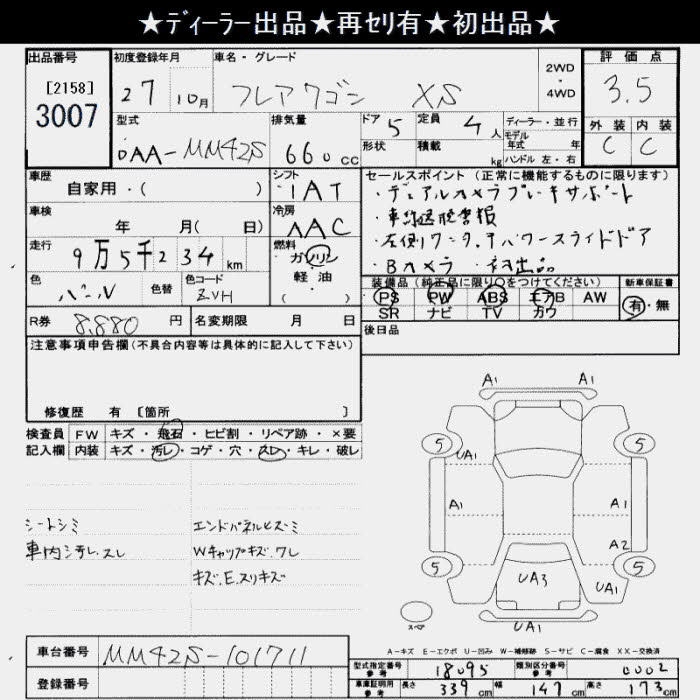 ★ディーラー出品★再セリ有★初出品★
出品番号
[2158]
3007
初度登録年月
27 10月
車名・グレード
フレアワゴン XS
2WD
・
4WD
評価点
3.5
外装 内装
C C
型式
DAA-MM42S
排気量
660 CC
ドア 5
形状
定員 4 人
積載 kg
ディーラー・並行
モデル年式 年
ハンドル 左・右
車歴
自家用・( )
シフト
IAT
車検
年 月( 日)
冷房
AAC
走行
9万5千234 km
燃料
ガソリン
軽・油
( )
色
パール
色替
色コード
ZVH
R券 8,880 円
名変期限 月 日
セールスポイント (正常に機能するものに限ります)
・デュアルカメラブレーキサポート
・車線逸脱警報
・左側ワンタッチパワースライドドア
・Bカメラ ・初出品
装備品 (純正品に限り○をつけてください)
PS PW ABS エアB AW
SR ナビ TV カワ
新車保証書
有・無
後日品
注意事項申告欄(不具合内容等は具体的に記入して下さい)
修復歴 有 [箇所 ]
検査員記入欄
FW キズ・飛石・ヒビ割・リペア跡・×要
内装 キズ・汚レ・コゲ・穴・スレ・キレ・破レ
シートシミ
車内汚レ.スレ
エンドパネルヒズミ
Wキャップキズ.ワレ
キズ.E.スリキズ
A1 A1
5 5
UA1
A1 A1
A2
5 5
UA3 UA1
スペア
UA1
A-キズ E-エクボ U-凹み W-補修跡 S-サビ C-腐食 XX-交換済
車台番号 MM42S-101711
登録番号
型式指定番号 参考 18095
類別区分番号 参考 0002
車庫証明用 参考 長さ 339 cm 幅 147 cm 高さ 173 cm